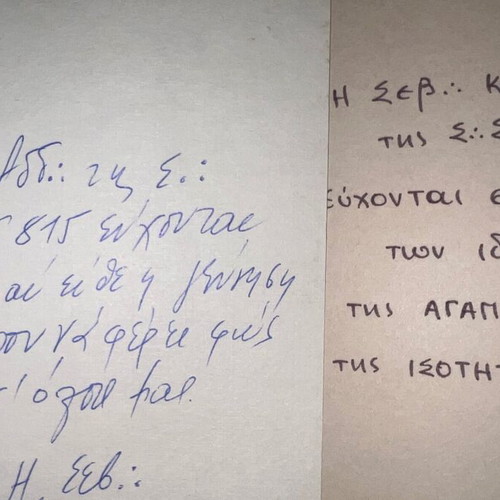 Αδδ∴ της Σ∴
815 εύχονται
αι είθε η γέννηση
να φέρει φως
όλους μας.
Η Σεβ∴
Η Σεβ∴ Κ
της Σ∴Σ
εύχονται ε
των ιδ
της ΑΓΑΠ
της ΙΣΟΤΗΤ